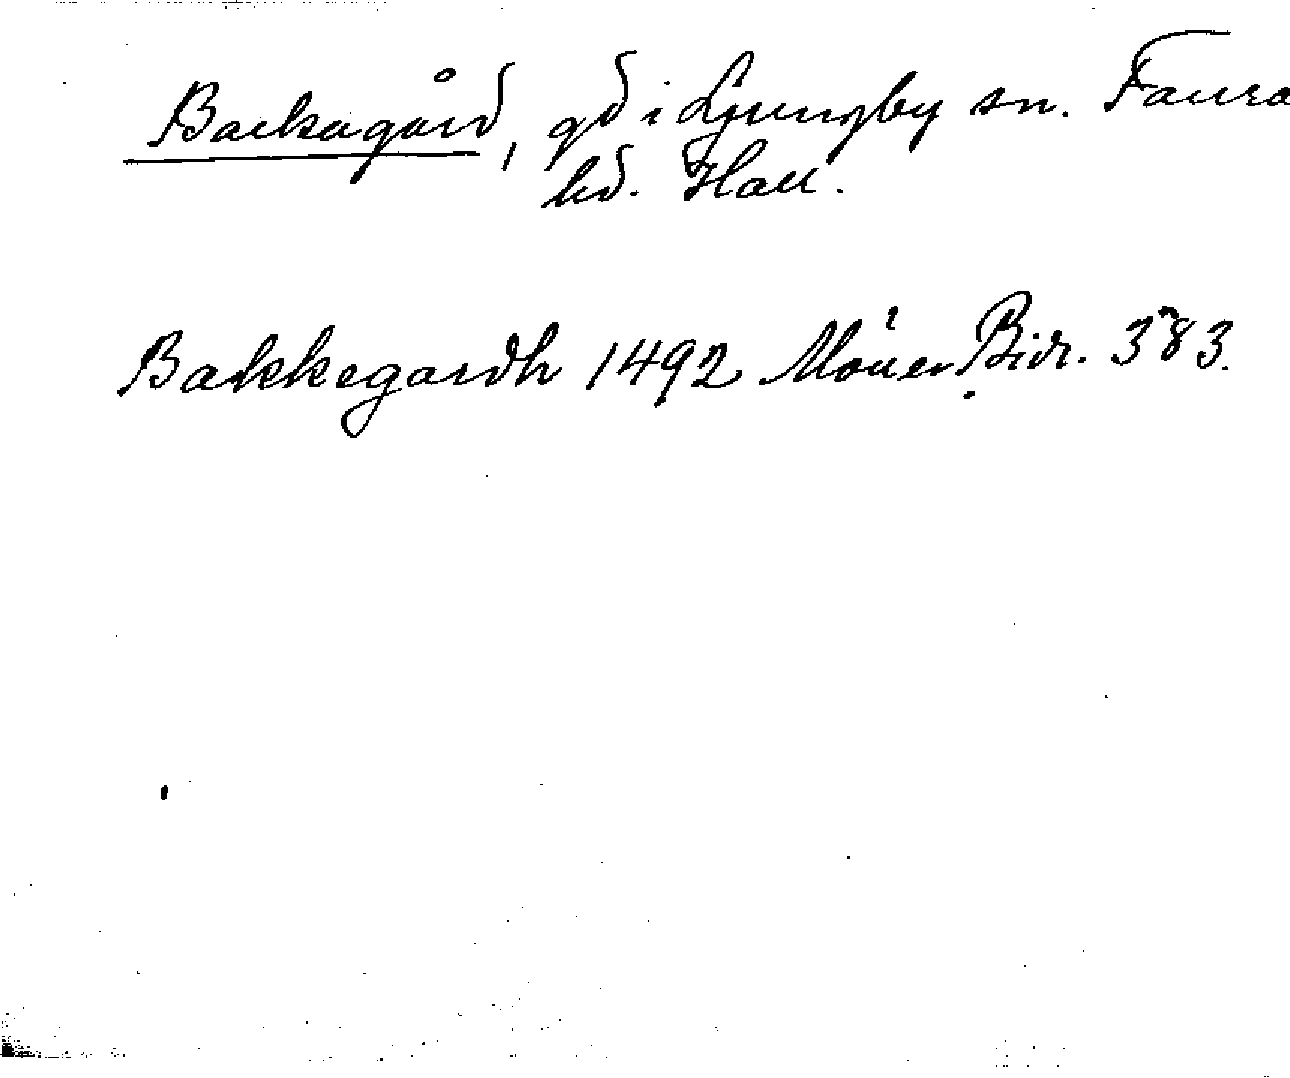 Backagård, gd i Ljungby sn. Faura
hd. Hall.
Bakkegardh 1492 Möller Bidr. 383.